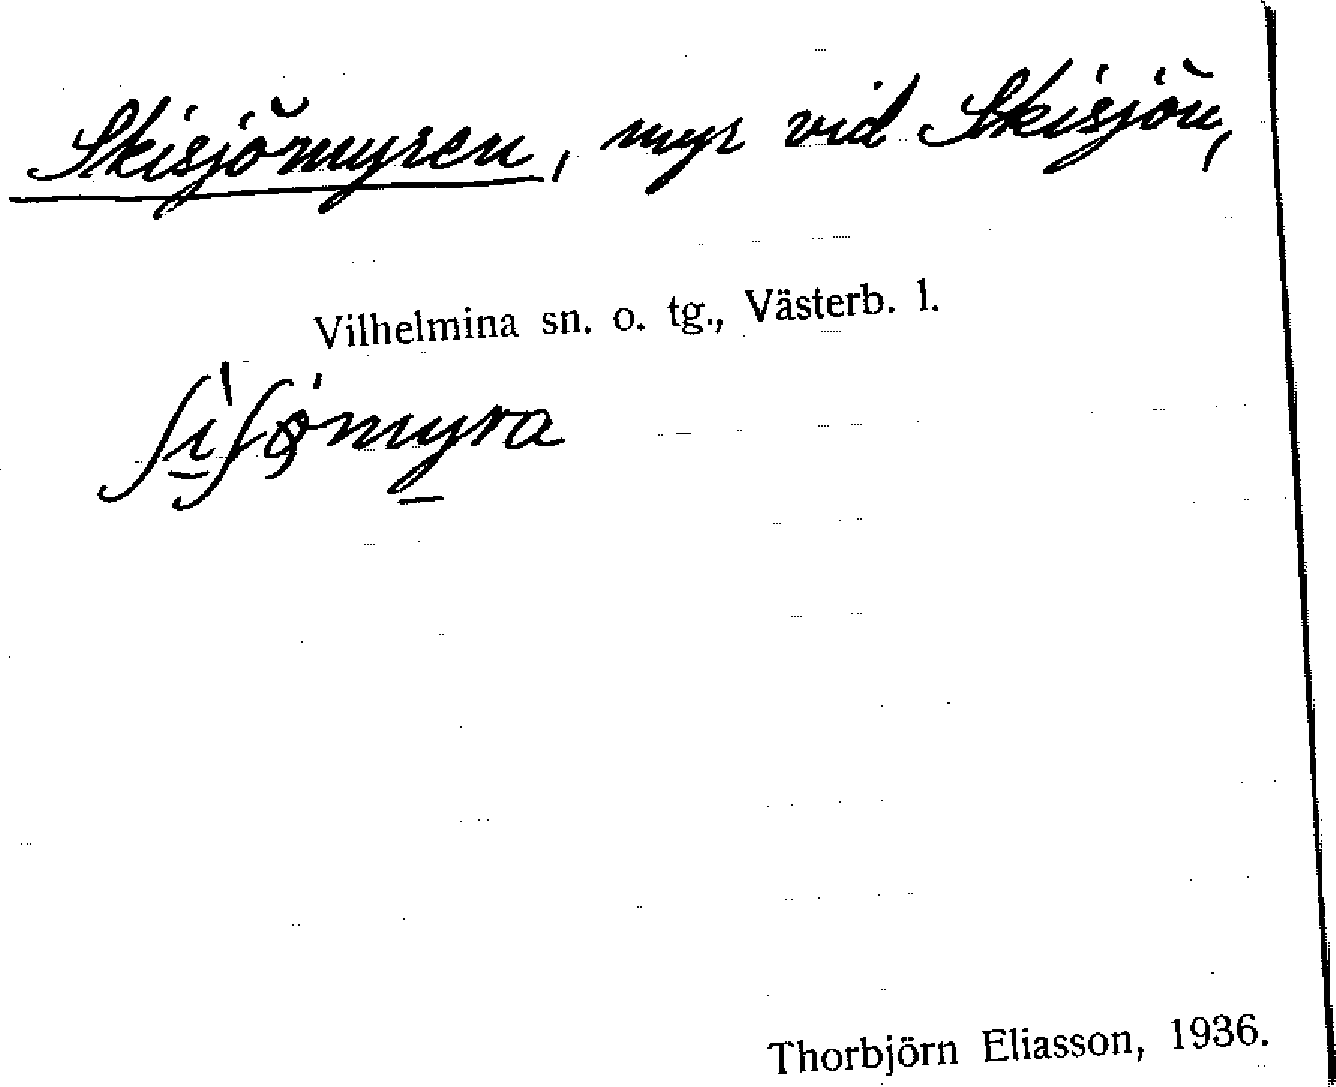 Skisjömyren, myr vid Skisjön,
Vilhelmina sn. o. tg., Västerb. l.
ʃì̱ʃø̨'my̱ra
Thorbjörn Eliasson, 1936.